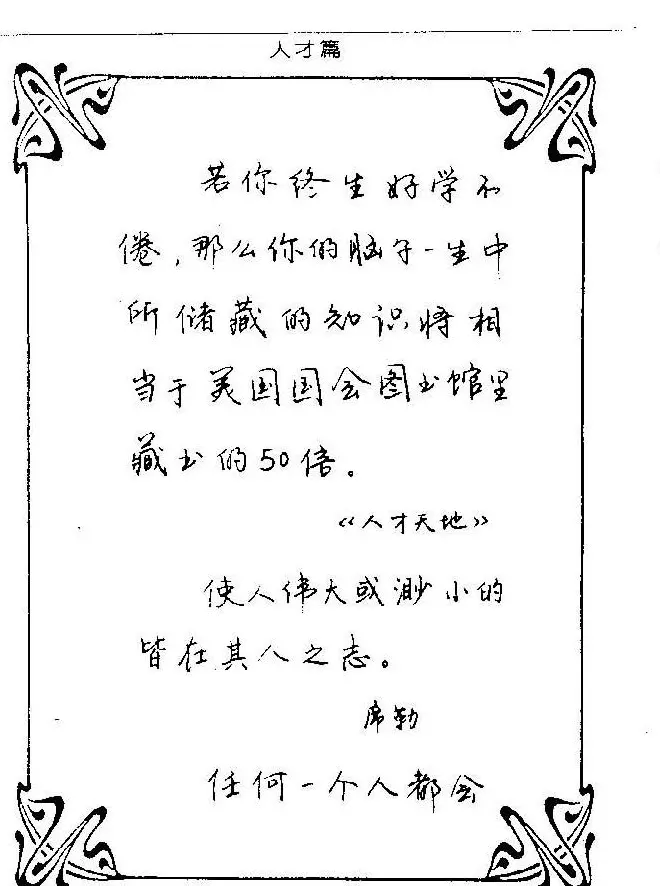 人才篇
若你终生好学不
倦,那么你的脑子一生中
所储藏的知识将相
当于美国国会图书馆里
藏书的50倍。
《人才天地》
使人伟大或渺小的
皆在其人之志。
席勒
任何一个人都会